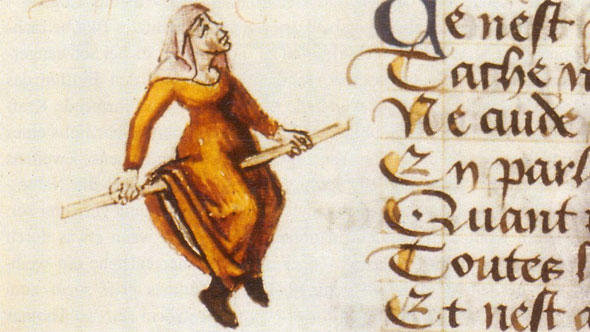 Ce nest
Tache n
Ne cuide
En parl
Quant
Toutes l
Et nest a